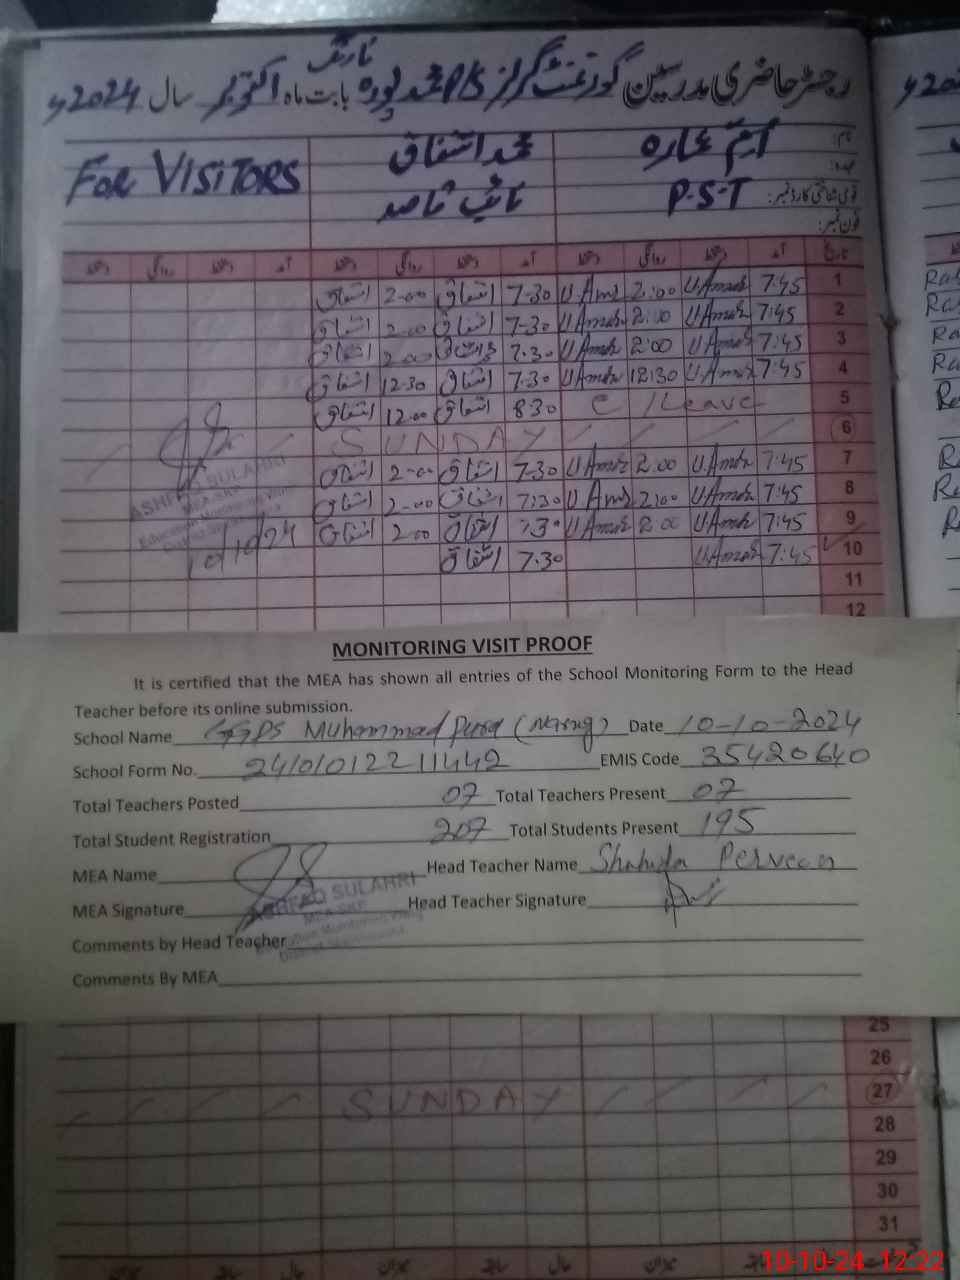 رجسٹر حاضری مدرسین گورنمنٹ گرلز P/S محمد پورہ نارنگ بابت ماہ اکتوبر سال 2024ء
نام:
عہدہ:
قومی شناختی کارڈ نمبر:
فون نمبر:
ارم عمارہ محمد اشفاق FOR VISITORS
P.S.T نائب قاصد
تاریخ آمد دستخط روانگی دستخط آمد دستخط روانگی دستخط آمد دستخط روانگی دستخط
1 7:45 U.Amar 2:00 U Amr 7-30 اشفاق 2-00 اشفاق
2 7:45 U.Amar 2:00 U Amar 7-30 اشفاق 2-00 اشفاق
3 7:45 U.Amar 2:00 U Amar 7.30 اشفاق 2-00 اشفاق
4 7:45 U.Amar 12:30 U Amar 7.30 اشفاق 12-30 اشفاق
5 C/Leave 8.30 اشفاق 12.00 اشفاق
6 SUNDAY
7 7:45 U Amar 2:00 U Amar 7-30 اشفاق 2-00 اشفاق
8 7:45 U Amar 2:00 U Amr 7:30 اشفاق 2-00 اشفاق
9 7:45 U Amar 2:00 U Amar 7.30 اشفاق 2.00 اشفاق
10 7:45 U Amar 7.30 اشفاق
ASHFAQ SULAHRI
MEA-SKP
Education Monitoring Wing
10/10/24
11
12
MONITORING VISIT PROOF
It is certified that the MEA has shown all entries of the School Monitoring Form to the Head
Teacher before its online submission.
School Name GGPS Muhammad Pura (Narng) Date 10-10-2024
School Form No. 24101012211442 EMIS Code 35420640
Total Teachers Posted 07 Total Teachers Present 07
Total Student Registration 207 Total Students Present 195
MEA Name Head Teacher Name Shahida Perveen
MEA Signature Head Teacher Signature
ASHFAQ SULAHRI
MEA-SKP
Education Monitoring Wing
Comments by Head Teacher
Comments By MEA
25
26
27 SUNDAY
28
29
30
31
10-10-24 12:22